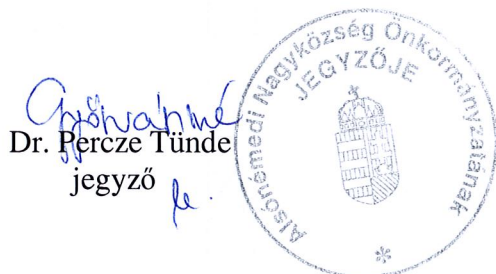 Dr. Percze Tünde
jegyző
Alsónémedi Nagyközség Önkormányzatának
JEGYZŐJE